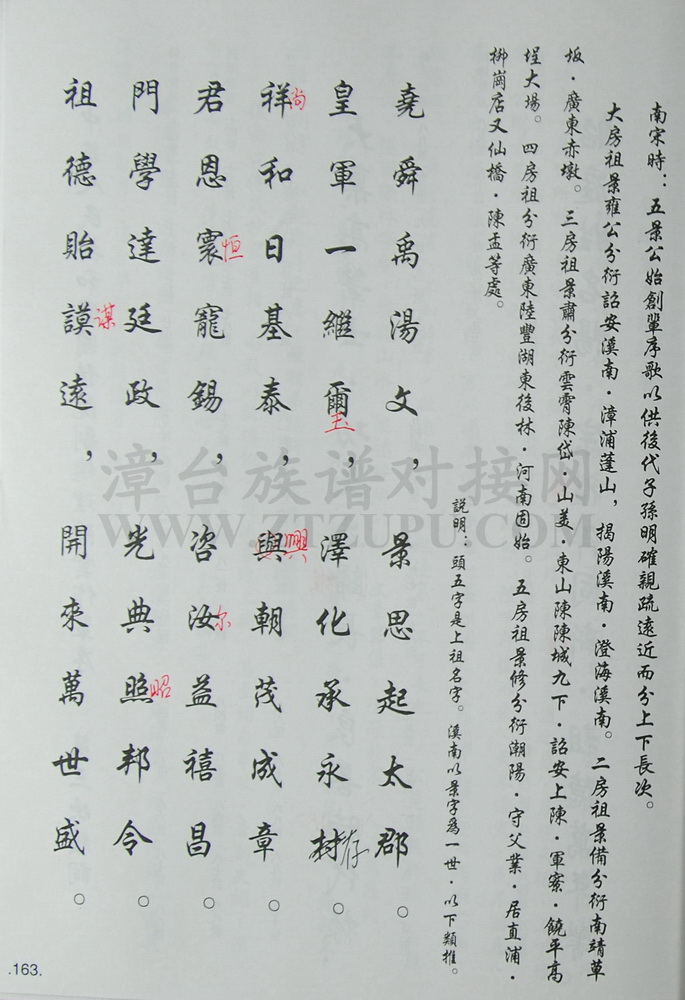 南宋時：五景公始創輩序歌以供後代子孫明確親疏遠近而分上下長次。
大房祖景雍公分衍詔安溪南·漳浦蓬山，揭陽溪南·澄海溪南。二房祖景備分衍南靖草
坂·廣東赤墩。三房祖景肅分衍雲霄陳岱·山美·東山陳陳城九下·詔安上陳·軍寮·饒平高
埕大場。四房祖分衍廣東陸豐湖東後林·河南固始。五房祖景修分衍潮陽·守父業·居直浦·
柳崗店又仙橋·陳孟等處。
說明：頭五字是上祖名字。溪南以景字為一世·以下類推。
堯舜禹湯文，景思起太郡。
皇軍一繼爾玉，澤化承永材存。
祥尚和日基泰，與興朝茂成章。
君恩寰恒寵錫，咨汝尔益禧昌。
門學達廷政，光典照昭邦令。
祖德貽謨谋遠，開來萬世盛。
漳台族谱对接网
WWW.ZTZUPU.COM
.163.